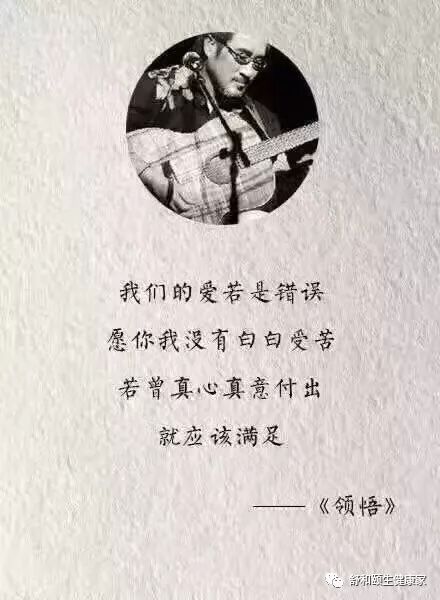 我们的爱若是错误
愿你我没有白白受苦
若曾真心真意付出
就应该满足
——《领悟》
舒和颐生健康家